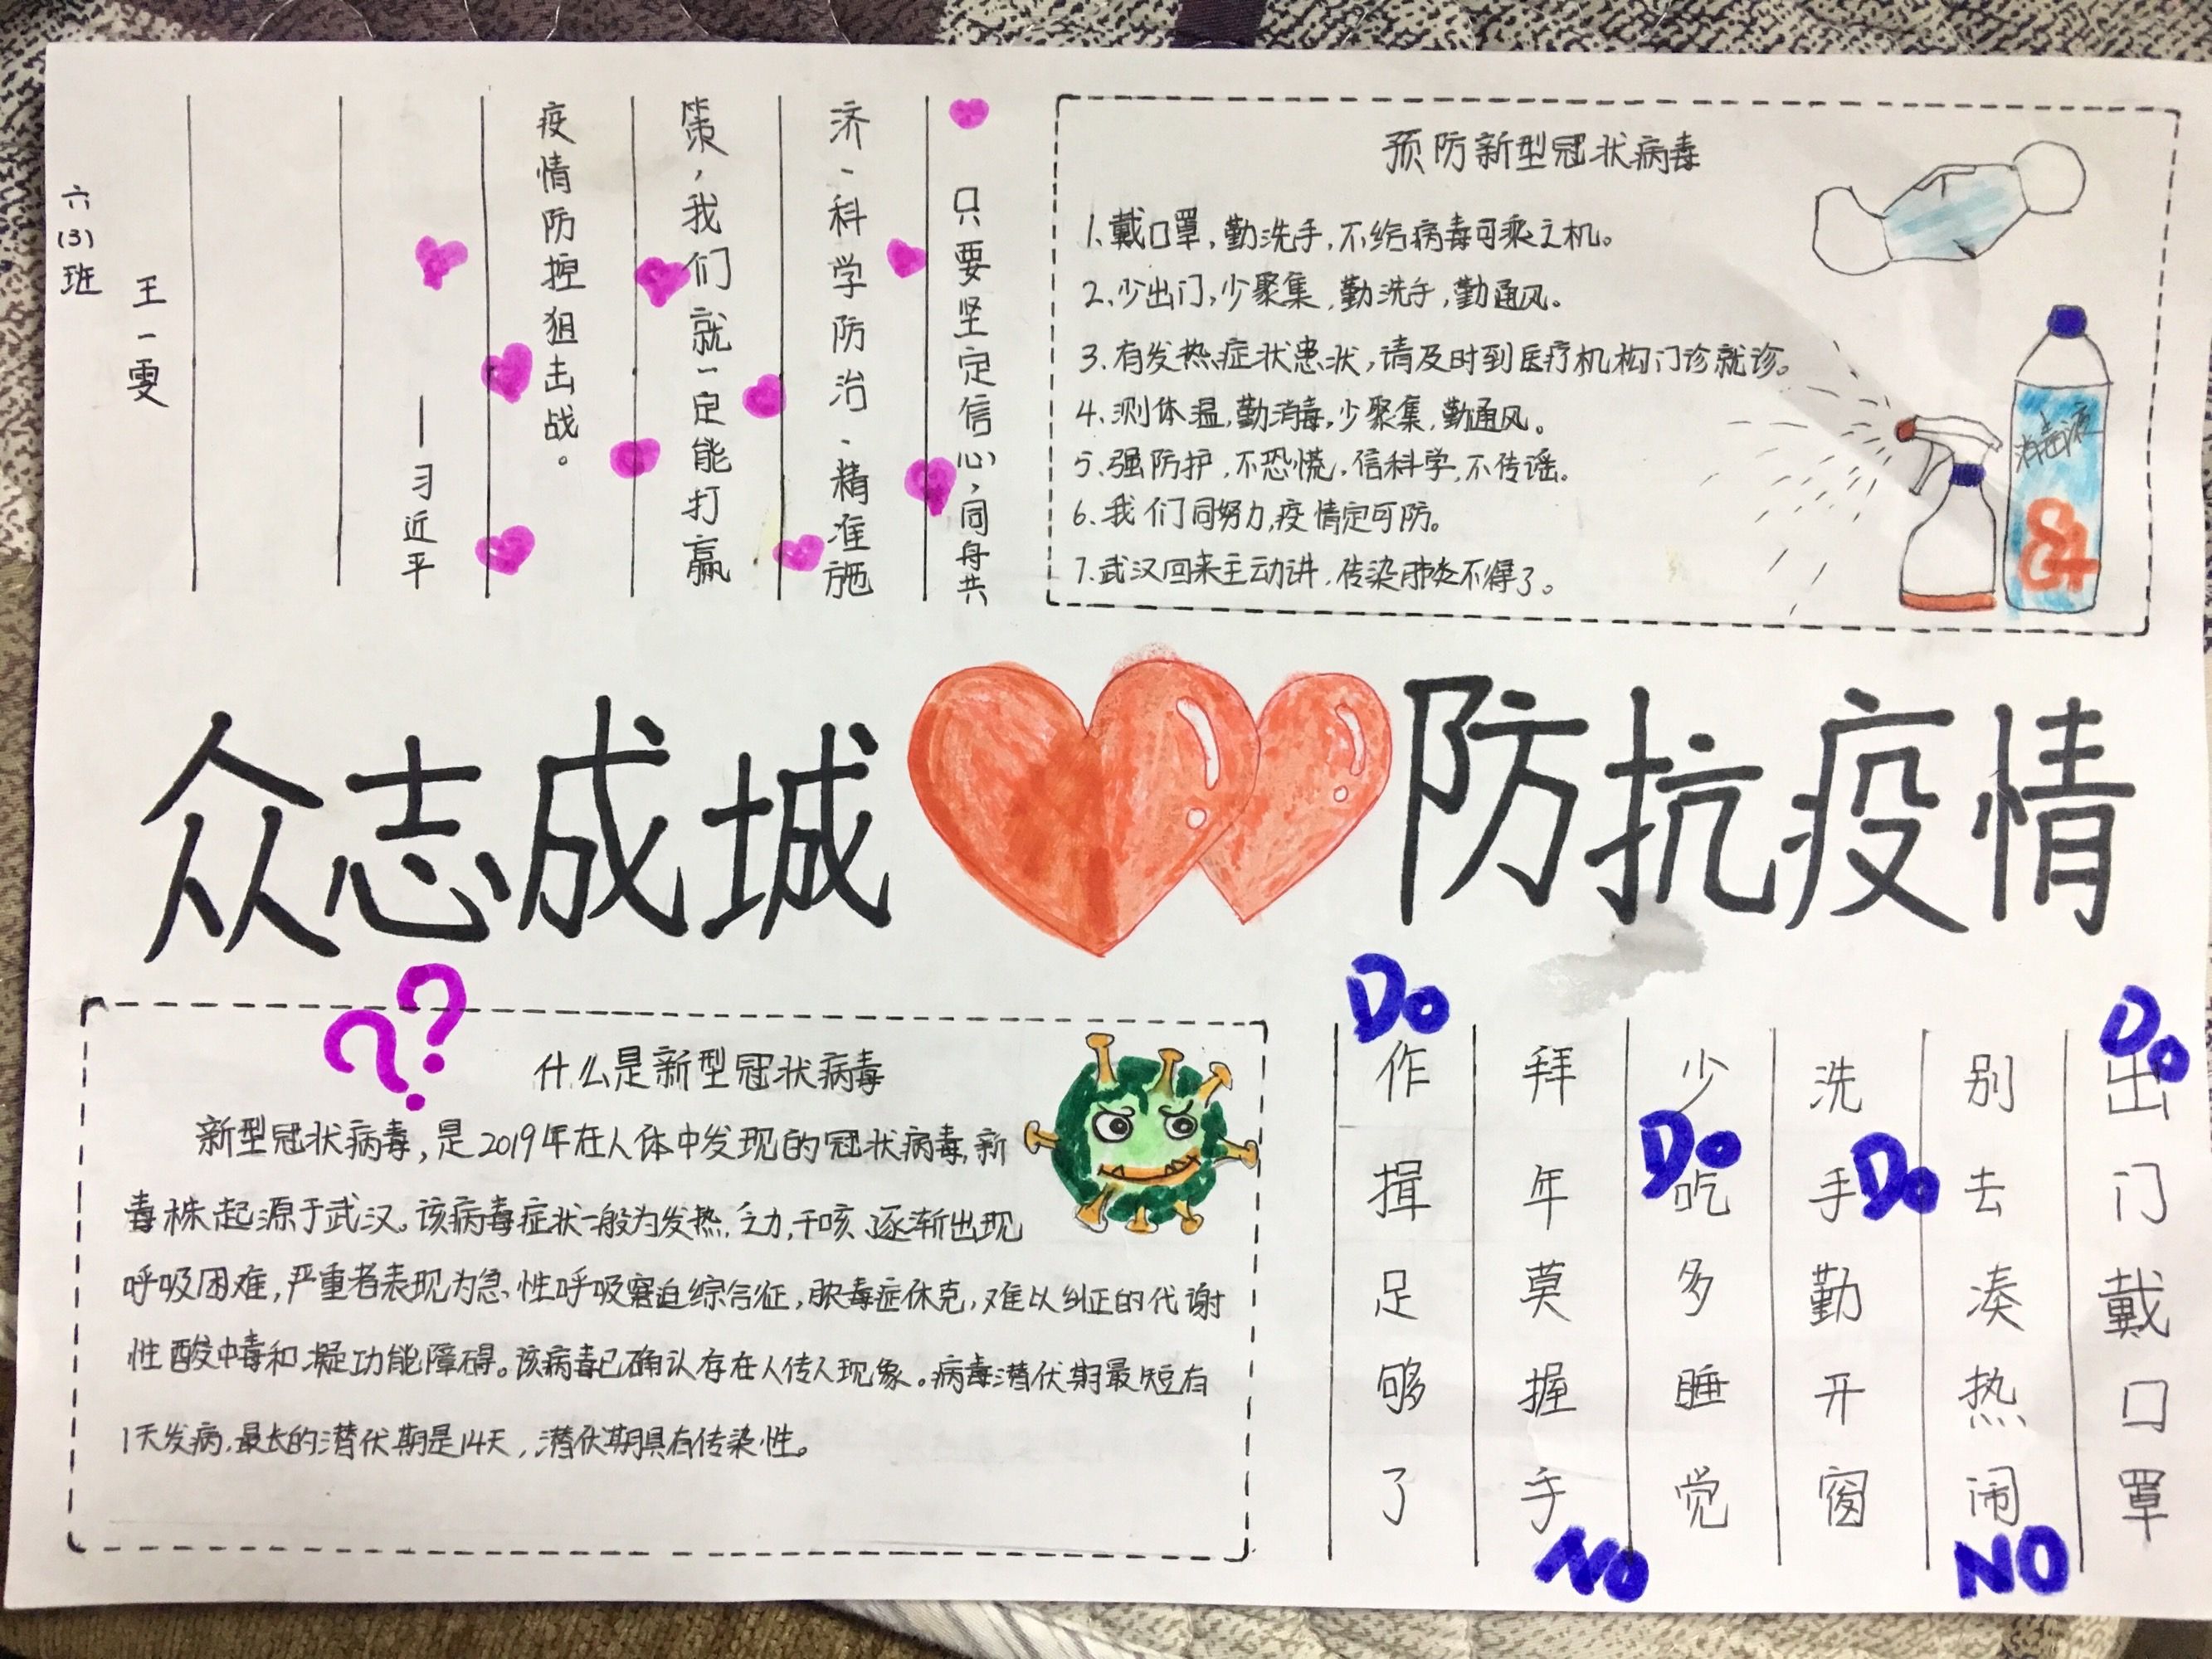 只要坚定信心，同舟共
济、科学防治、精准施
策，我们就一定能打赢
疫情防控狙击战。
——习近平
王一雯
六(3)班
预防新型冠状病毒
1、戴口罩，勤洗手，不给病毒可乘之机。
2、少出门，少聚集，勤洗手，勤通风。
3、有发热症状患状，请及时到医疗机构门诊就诊。
4、测体温，勤消毒，少聚集，勤通风。
5、强防护，不恐慌，信科学，不传谣。
6、我们同努力，疫情定可防。
7、武汉回来主动讲，传染肺炎不得了。
消毒液
84
众志成城 防抗疫情
??
什么是新型冠状病毒
新型冠状病毒，是2019年在人体中发现的冠状病毒，新
毒株起源于武汉。该病毒症状一般为发热，乏力，干咳、逐渐出现
呼吸困难，严重者表现为急性呼吸窘迫综合征，脓毒症休克，难以纠正的代谢
性酸中毒和凝功能障碍。该病毒已确认存在人传人现象。病毒潜伏期最短有
1天发病，最长的潜伏期是14天，潜伏期具有传染性。
Do
出门戴口罩
别去凑热闹
NO
Do
洗手勤开窗
Do
少吃多睡觉
拜年莫握手
NO
Do
作揖足够了